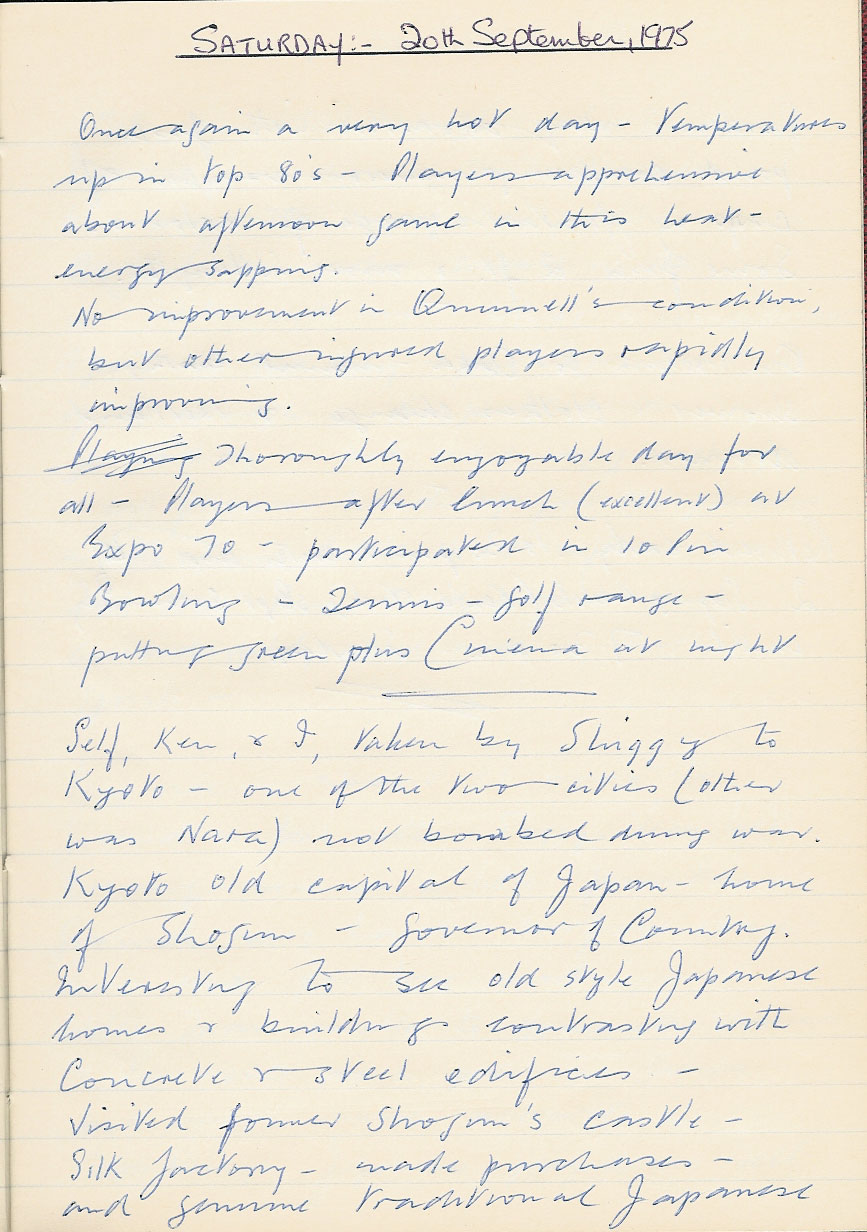 SATURDAY:- 20th September, 1975
Once again a very hot day - Temperatures
up in top 80's - Players apprehensive
about afternoon game in this heat -
energy sapping.
No improvement in Quinnell's condition,
but other injured players rapidly
improving.
Playing Thoroughly enjoyable day for
all - Players after lunch (excellent) at
Expo 70 - participated in 10 Pin
Bowling - Tennis - golf range -
putting green plus Cinema at night
Self, Ken, & I, taken by Shiggy to
Kyoto - one of the two cities (other
was Nara) not bombed during war.
Kyoto old capital of Japan - home
of Shogun - Governor of Country.
Interesting to see old style Japanese
homes & buildings contrasting with
Concrete & steel edificies -
Visited former Shogun's castle -
Silk factory - made purchases -
and genuine traditional Japanese